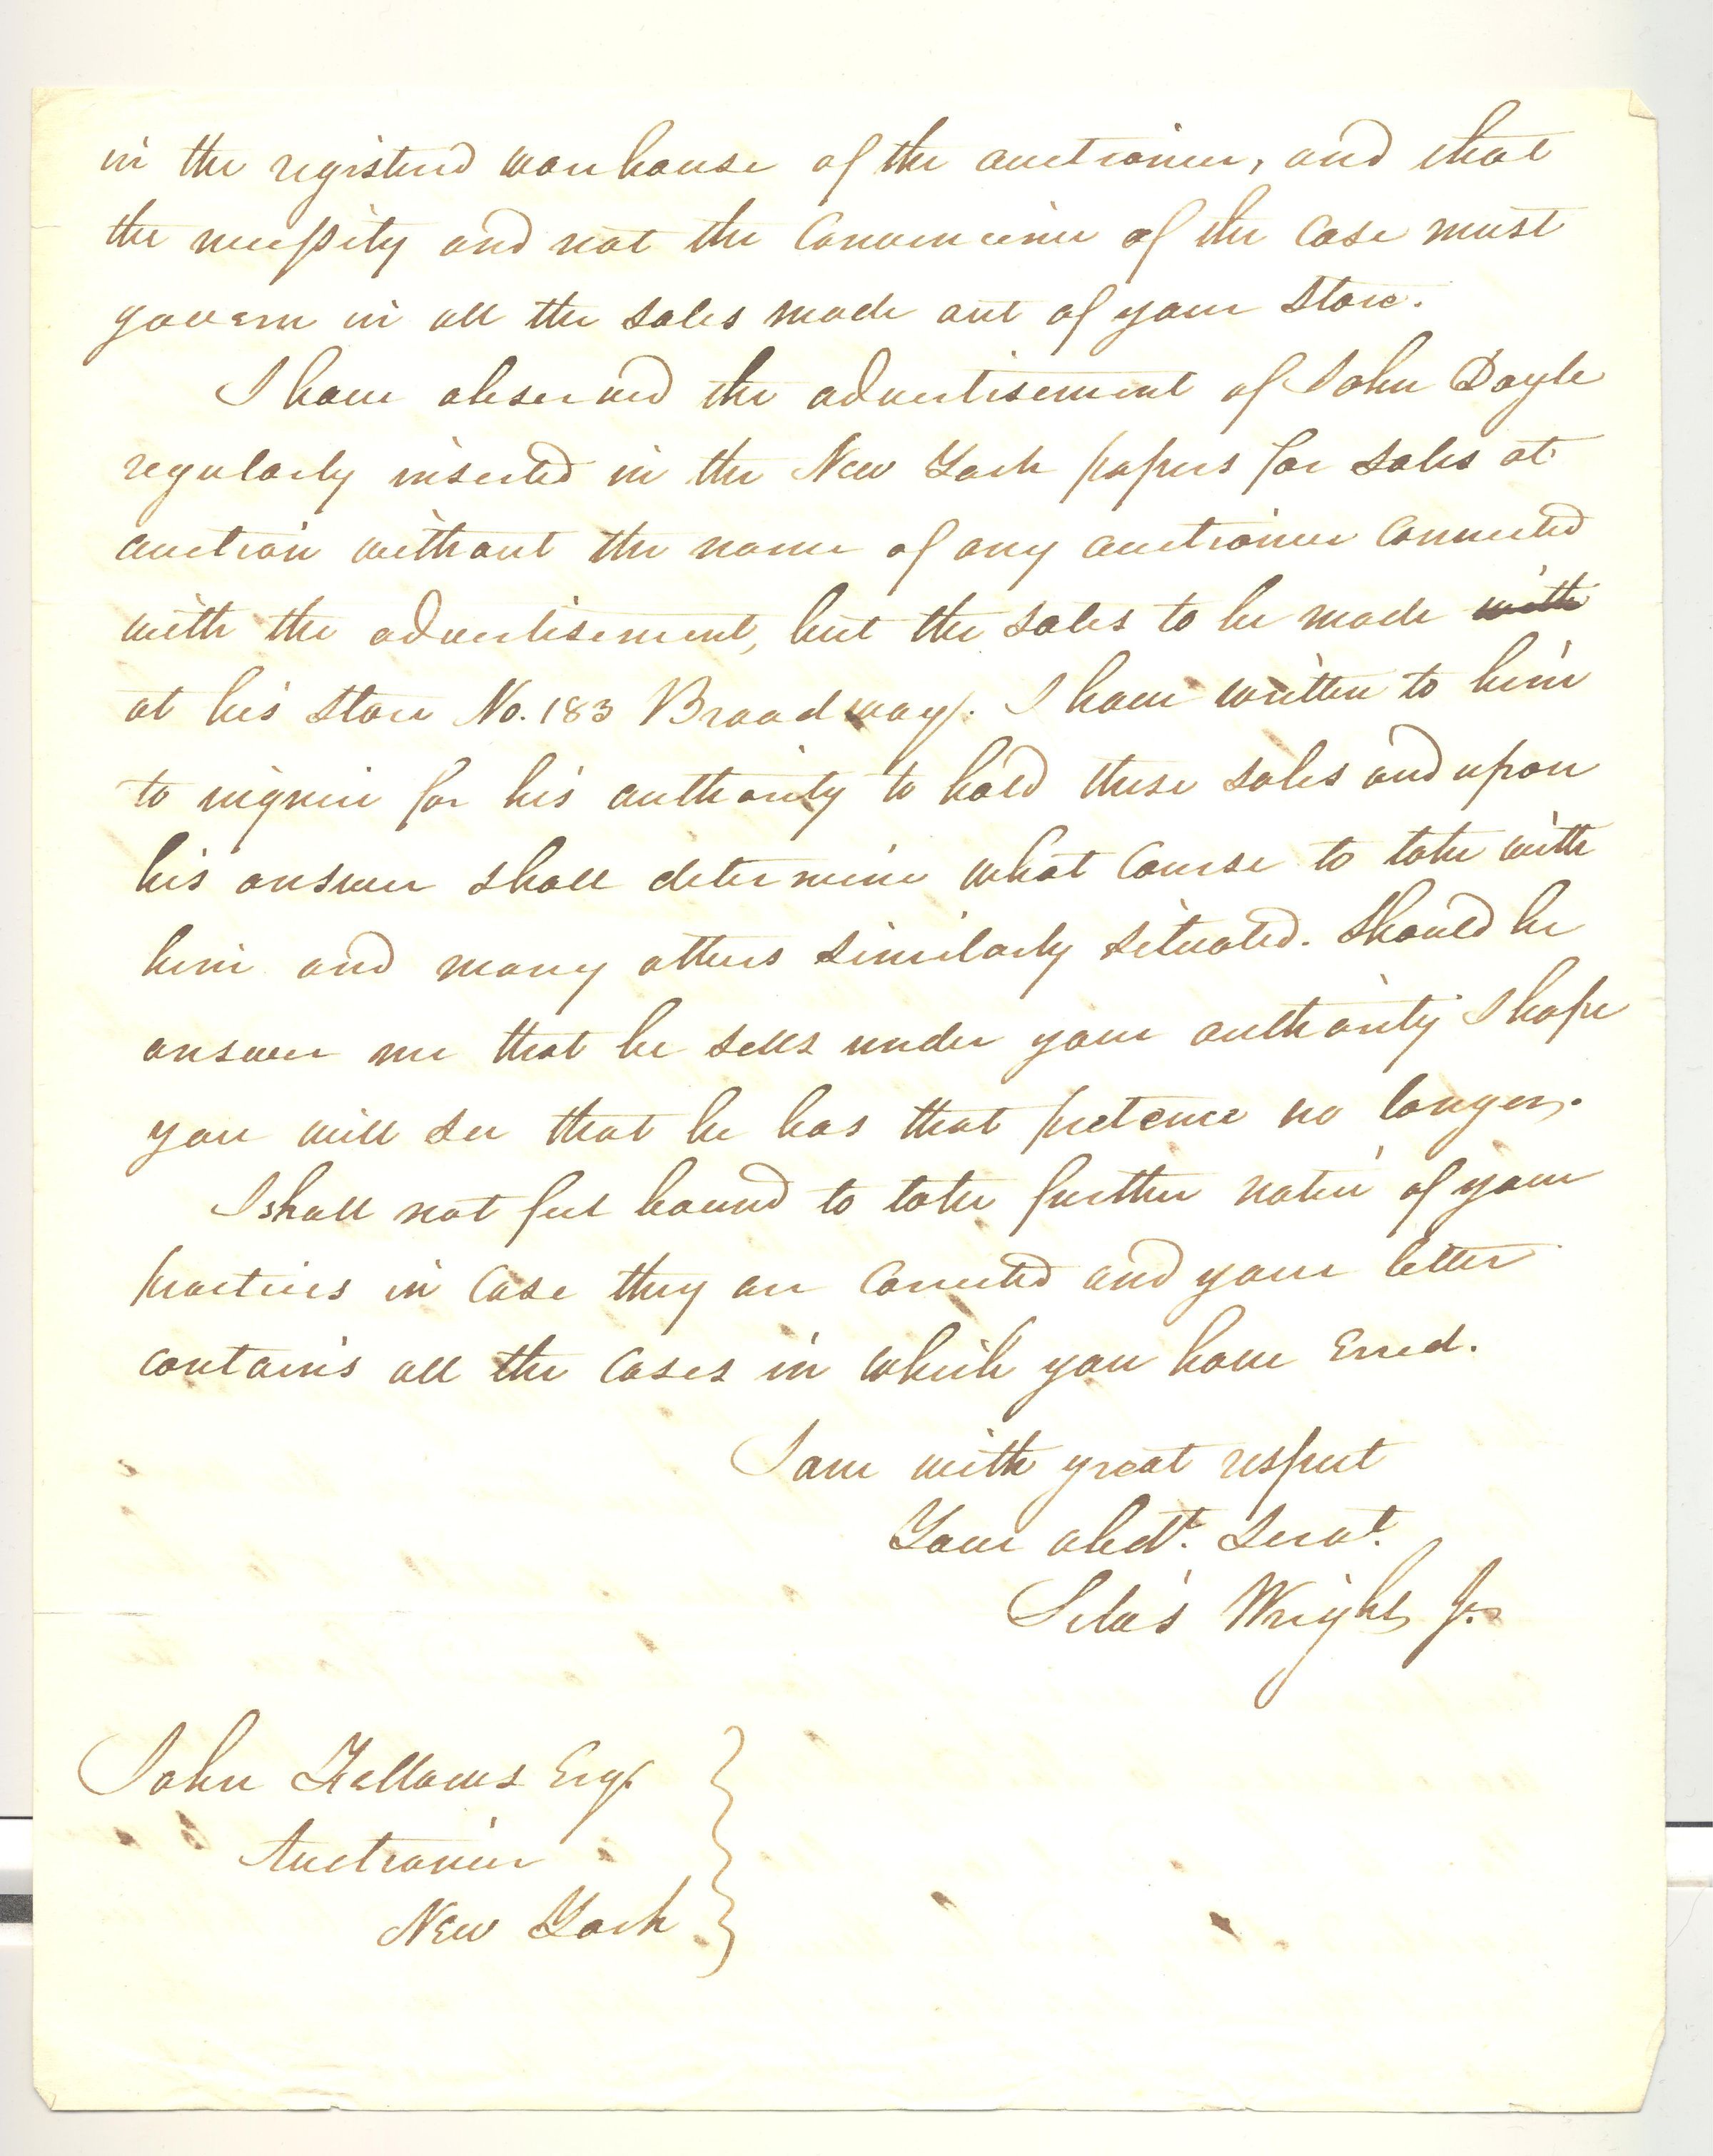 in the registered warehouse of the auctioneer, and that
the necessity and not the convenience of the case must
govern in all the sales made out of your store.
I have observed the advertisement of John Doyle
regularly inserted in the New York papers for sales at
auction without the name of any auctioneer connected
with the advertisement, but the sales to be made with
at his store No. 183 Broadway. I have written to him
to inquire for his authority to hold these sales and upon
his answer shall determine what course to take with
him and many others similarly situated. Should he
answer me that he sells under your authority I hope
you will see that he has that pretence no longer.
I shall not feel bound to take further notice of your
practices in case they are corrected and your letter
contains all the cases in which you have erred.
I am with great respect
Your obdt. Servt.
Silas Wright Jr
John Fellows Esqr
Auctioneer
New York